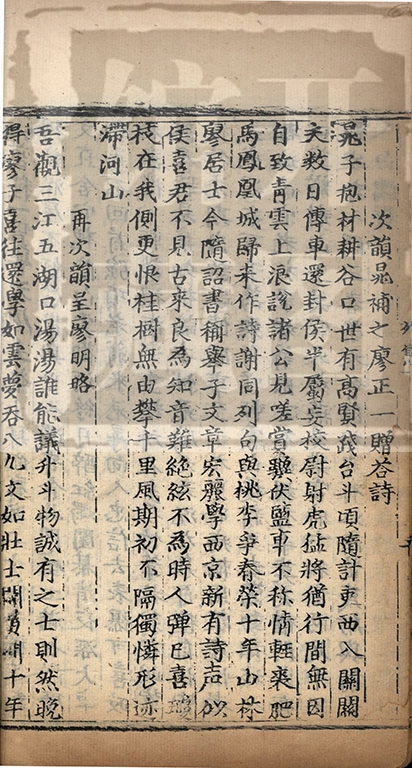 次韻晁補之廖正一贈荅詩
晁子抱材耕谷口世有高賢踐台斗頃隨計吏西入關關
夫數日傳車還封侯半屬妄校尉射虎猛將猶行間無因
自致青雲上浪說諸公見嗟賞驥伏鹽車不称情輕裘肥
馬鳳凰城歸来作詩謝同列句與桃李爭春榮十年山林
廖居士今隨詔書稱舉子文章宏麗學西京新有詩声似
侯喜君不見古来良為知音難絶絃不為時人彈已喜瓊
枝在我側更恨桂樹無由攀千里風期初不隔獨憐形迹
滯河山
再次韻呈廖明略
吾觀三江五湖口湯湯誰能議升斗物誠有之士則然晚
得廖子喜往還學如雲夢吞八九文如壯士開黃間十年